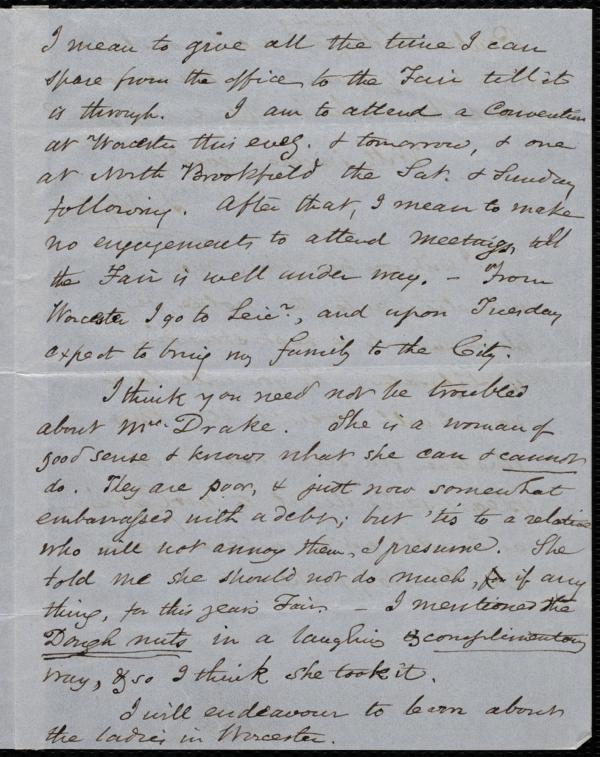 I mean to give all the time I can
spare from the office, to the Fair till it
is through. I am to attend a Convention
at Worcester this eveg. & tomorrow, & one
at North Brookfield the Sat. & Sunday
following. After that, I mean to make
no engagements to attend meetings, till
the Fair is well under way. – From
Worcester I go to Leicr., and upon Tuesday
expect to bring my family to the City.
I think you need not be troubled
about Mrs. Drake. She is a woman of
good sense & knows what she can & cannot
do. They are poor, & just now somewhat
embarrassed with a debt; but 'tis to a relative
who will not annoy them, I presume. She
told me she should not do much, if any
thing, for this year's Fair – I mentioned the
Dough nuts in a laughing & complimentary
way, & so I think she took it.
I will endeavour to learn about
the ladies in Worcester.